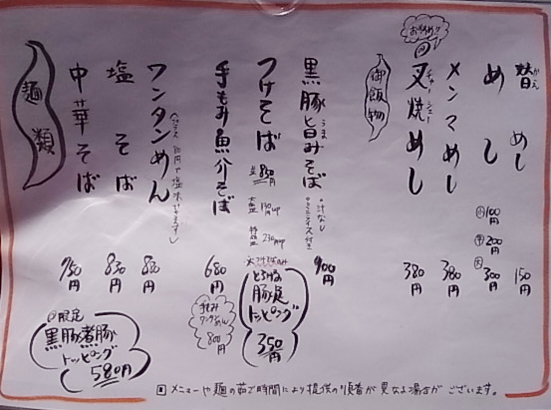 麺類
中華そば 750円
塩そば 830円
ワンタンめん 830円
手もみ魚介そば 680円
800円
つけそば 並 850円
大盛 130円up
特盛 230円up
黒豚旨みそば 900円
うま
・汁なし
御飯物
お勧め!!
叉焼めし 380円
チャーシュー
メンマめし 380円
めし
小 100円
中 200円
大 300円
替めし 150円
かえ
限定
黒豚煮豚
トッピング
580円
とろける
豚足
トッピング
350円
メニューや麺の茹で時間により提供の順番が異なる場合がございます。